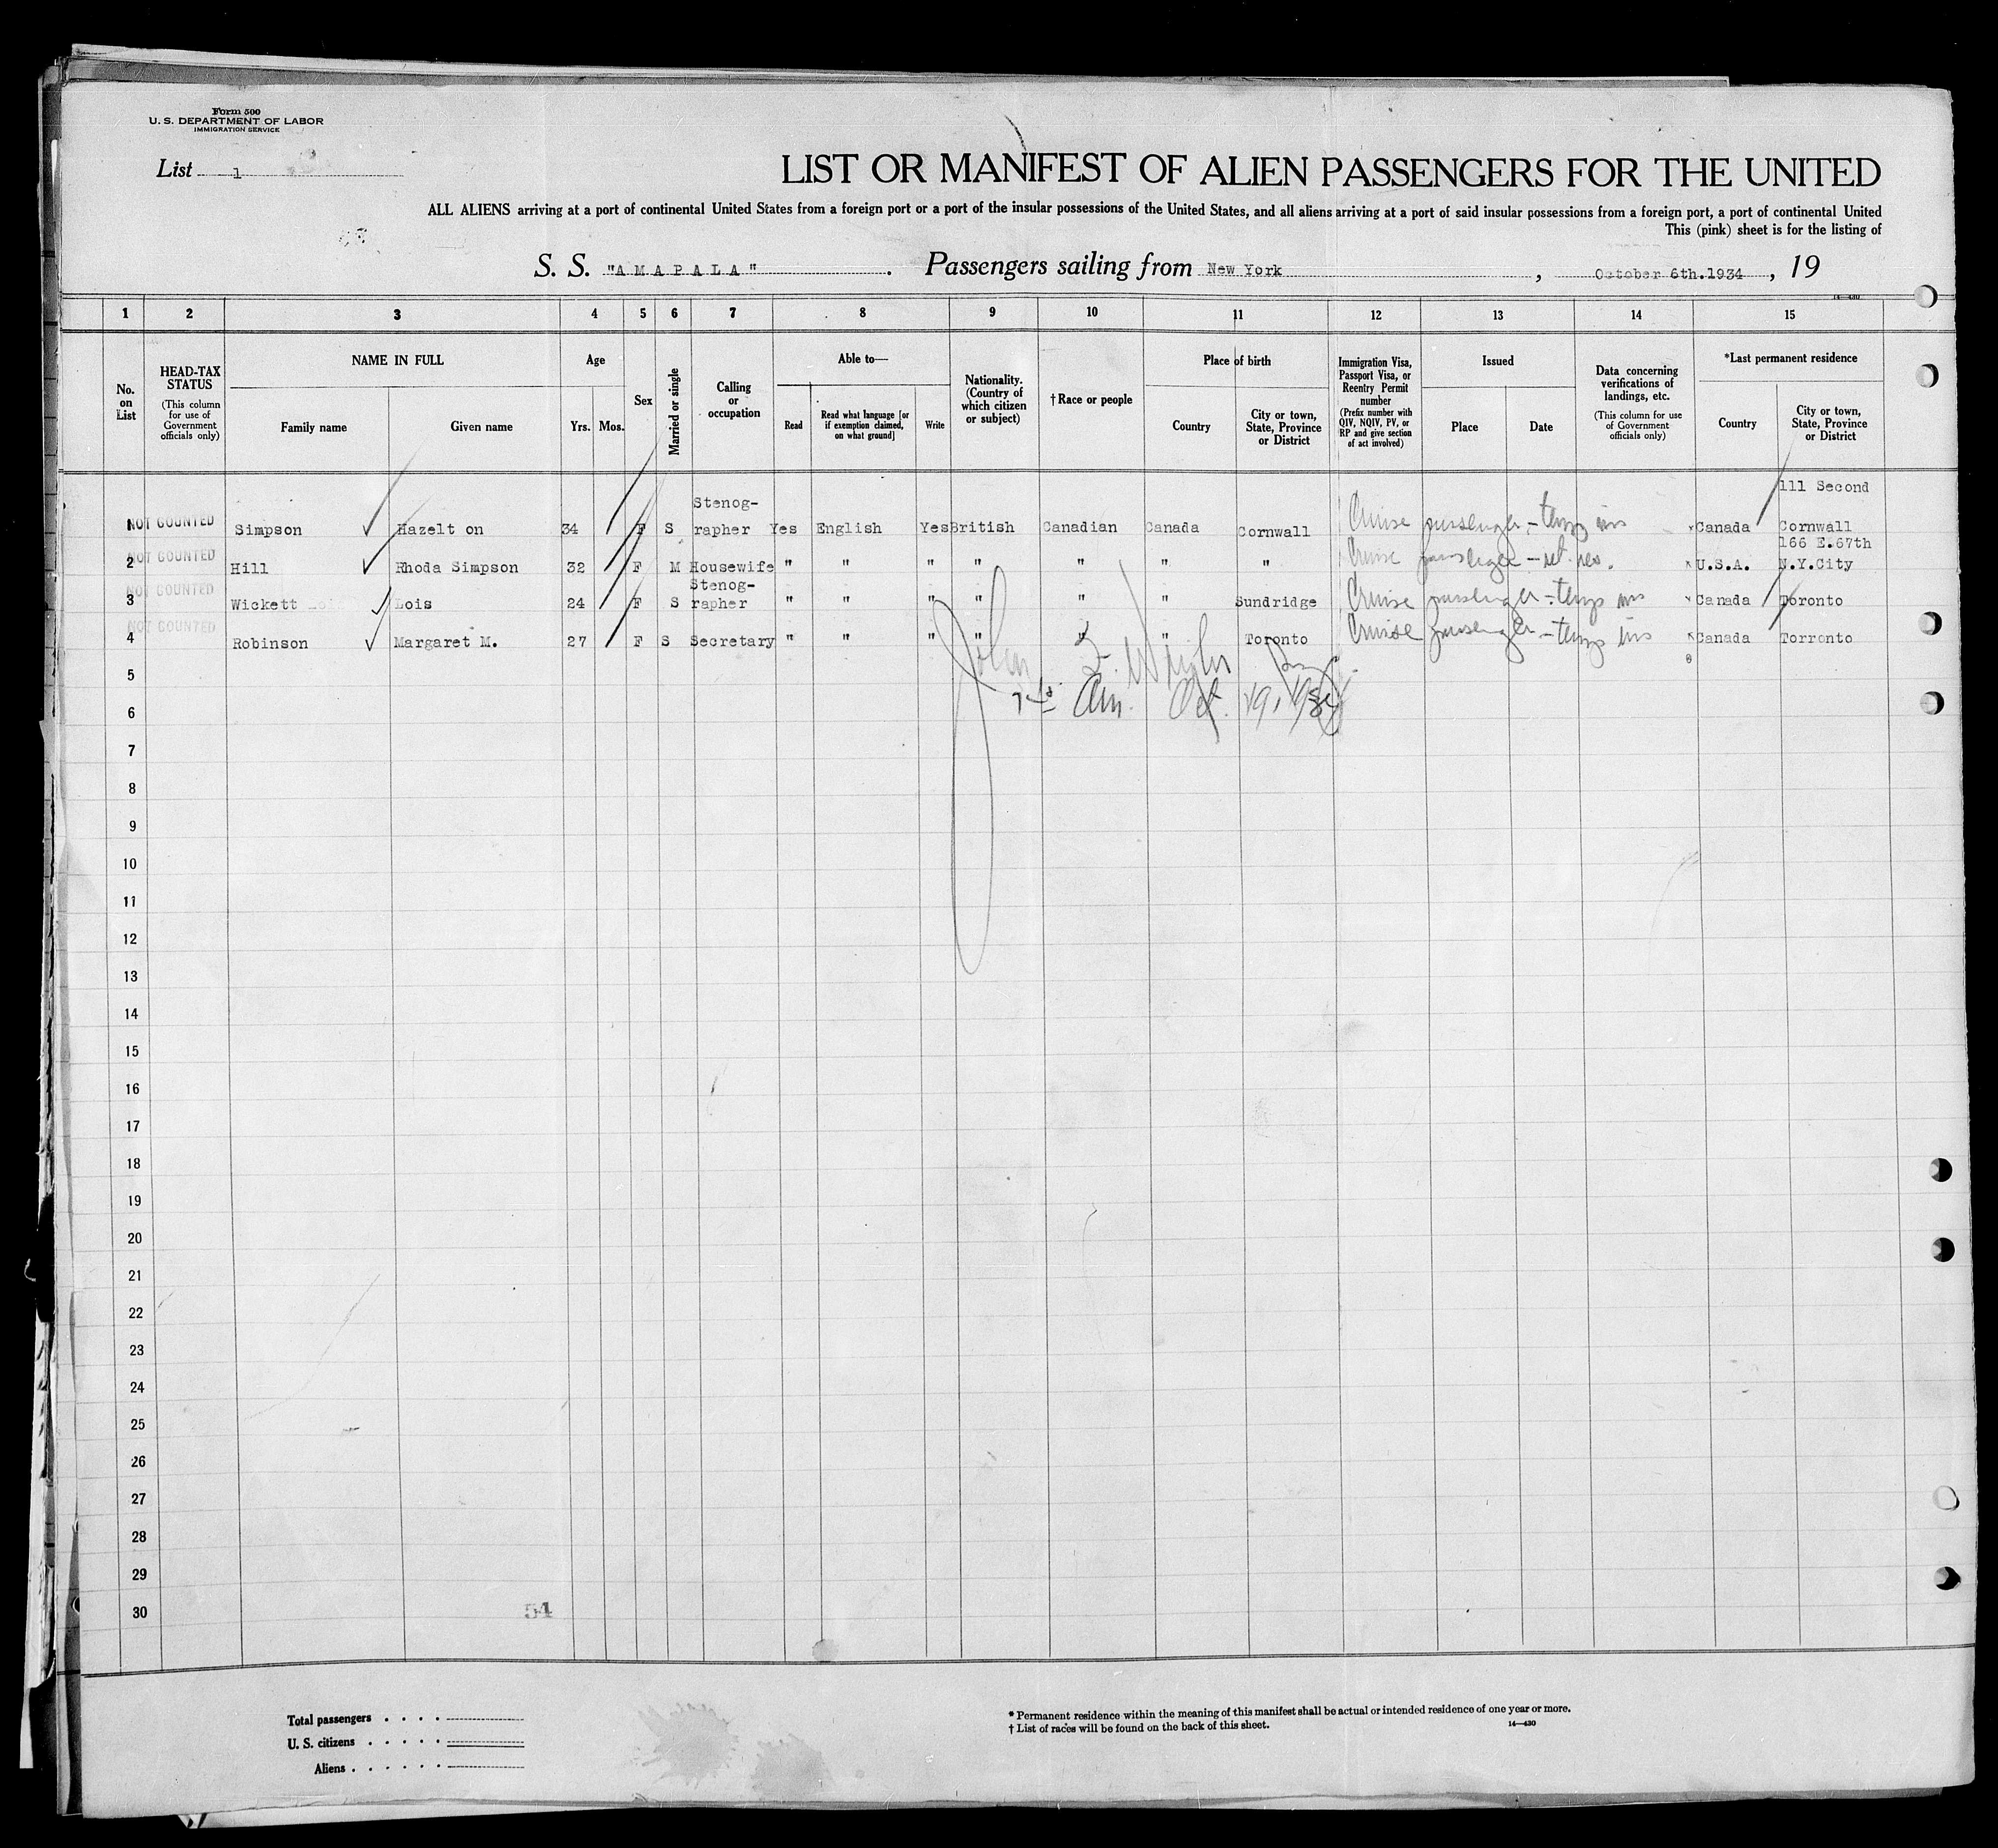 Form 500
U. S. DEPARTMENT OF LABOR
IMMIGRATION SERVICE
List 1
LIST OR MANIFEST OF ALIEN PASSENGERS FOR THE UNITED
ALL ALIENS arriving at a port of continental United States from a foreign port or a port of the insular possessions of the United States, and all aliens arriving at a port of said insular possessions from a foreign port, a port of continental United
This (pink) sheet is for the listing of
S. S. "AMAPALA" . Passengers sailing from New York , October 6th.1934 , 19
14—430
1 2 3 4 5 6 7 8 9 10 11 12 13 14 15
No. on List
HEAD-TAX STATUS (This column for use of Government officials only)
NAME IN FULL
Family name Given name
Age
Yrs. Mos.
Sex
Married or single
Calling or occupation
Able to—
Read Read what language [or if exemption claimed, on what ground] Write
Nationality. (Country of which citizen or subject)
†Race or people
Place of birth
Country City or town, State, Province or District
Immigration Visa, Passport Visa, or Reentry Permit number (Prefix number with QIV, NQIV, PV, or RP and give section of act involved)
Issued
Place Date
Data concerning verifications of landings, etc. (This column for use of Government officials only)
*Last permanent residence
Country City or town, State, Province or District
Stenog- 111 Second
1 NOT COUNTED Simpson Hazelt on 34 F S rapher Yes English Yes British Canadian Canada Cornwall Cruise passenger - temp ins Canada Cornwall
166 E.67th
2 NOT COUNTED Hill Rhoda Simpson 32 F M Housewife " " " " " " " Cruise passenger - ret. res. U.S.A. N.Y.City
Stenog-
3 NOT COUNTED Wickett Lois 24 F S rapher " " " " " " Sundridge Cruise passenger - temp ins Canada Toronto
4 NOT COUNTED Robinson Margaret M. 27 F S Secretary " " " " " " Toronto Cruise passenger - temp ins Canada Torronto
5 John
6 Oct. 19, 1934
7
8
9
10
11
12
13
14
15
16
17
18
19
20
21
22
23
24
25
26
27
28
29
30
54
Total passengers . . . .
U. S. citizens . . . . .
Aliens . . . . . .
* Permanent residence within the meaning of this manifest shall be actual or intended residence of one year or more.
† List of races will be found on the back of this sheet.
14—430